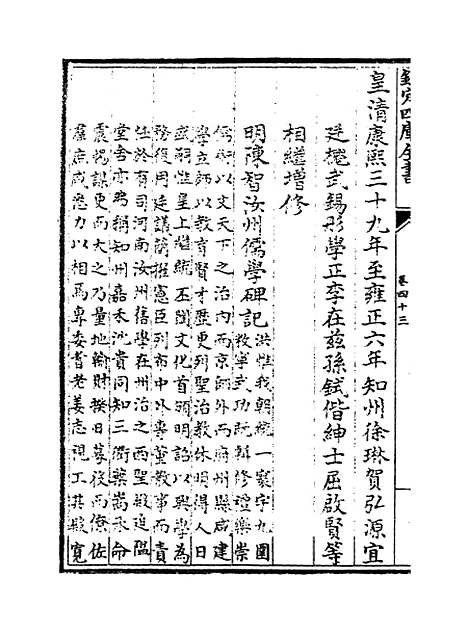 欽定四庫全書
卷四十三
皇清康熙三十九年至雍正六年知州徐琳賀弘源宜
廷機武錫彤學正李在兹孫鉽偕紳士屈啟賢等
相繼增修
明陳智汝州儒學碑記
洪惟我朝統一寰宇九圍
敉寧武功既輯修禮樂崇
儒術以文天下之治内而京師外而府州縣咸建
學立師以教育賢才歷更列聖治教休明得人日
盛嗣惟皇上繼統丕闡文化首頒明詔以興學為
務復用廷議簡擢憲臣列布中外專董教事而責
任於有司河南汝州舊學在州治之西聖殿迫隘
堂舍亦弗稱知州嘉禾沈貴同知三衢葉嵩承命
震惕謀更而大之乃量地輸財揆日募役而僚佐
羣咸悉力以相焉專委耆老姜志視工其殿寛